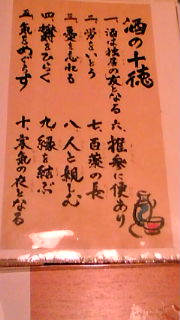 酒の十徳
一、酒は独居の友となる
二、労をいとう
三、憂を忘れる
四、鬱をひらく
五、氣をめぐらす
六、推参に便あり
七、百薬の長
八、人と親しむ
九、縁を結ぶ
十、寒氣の衣となる